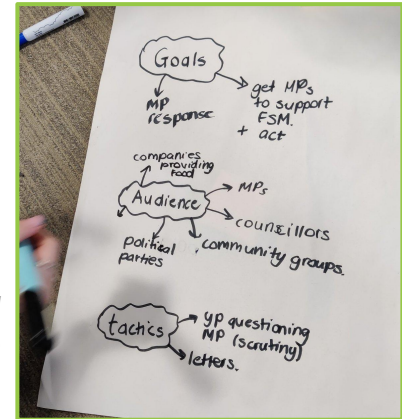 Goals
MP
response
get MPs
to support
FSM.
+ act
companies
providing
food
Audience
MPs
councillors
community groups.
political
parties
tactics
yp questioning
MP (scrutiny)
letters.